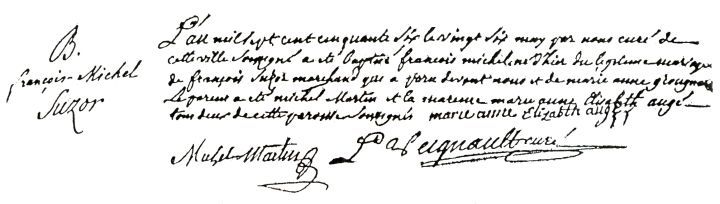 B.
françois-Michel
Suzor
L'an mil sept cent cinquante six le vingt six may par nous curé de
cette ville soussigné a eté baptisé francois michel né d'hier du legitime mariage
de françois Suzor marchand qui a paru devant nous et de marie anne
le parein a eté michel Martin et la mareine marie anne Elizabth augé
tous deux de cette paroisse soussignés marie anne Elizabth augé
Michel Martin
curé